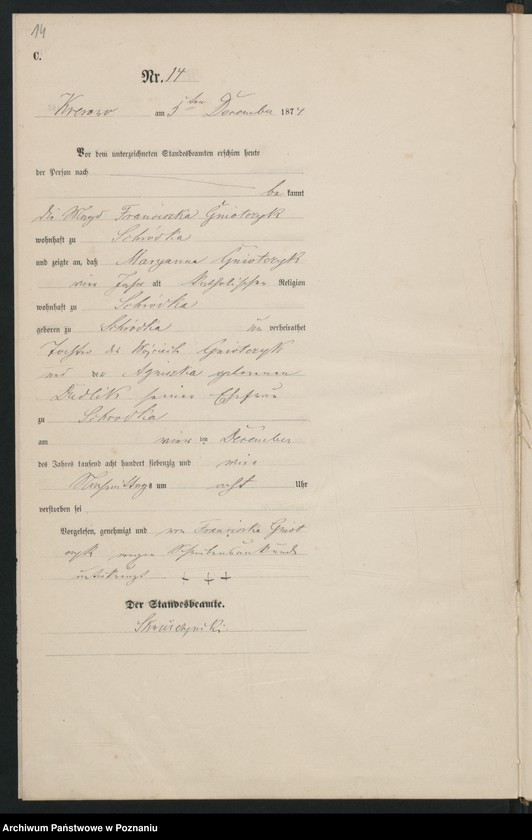 14
C.
Nr. 14
am 5ten December 1874
Vor dem unterzeichneten Standesbeamten erschien heute
der Person nach
be kannt
die Magd Franciszka Gniotczyk
wohnhaft zu Schrodka
und zeigte an, daß Maryanna Gniotczyk
vier Jahr alt katholischer Religion
wohnhaft zu Schrodka
geboren zu Schrodka un verheirathet
Tochter des Wojciech Gniotczyk
und der Agnieszka geborenen
seiner Ehefrau
zu Schrodka
am vierten December
des Jahres tausend acht hundert siebenzig und vier
Nachmittags um acht Uhr
verstorben sei
Vorgelesen, genehmigt und von Franciszka Gniot
czyk wegen Schreibensunkunde
unterkreuzt + + +
Der Standesbeamte.
Archiwum Państwowe w Poznaniu